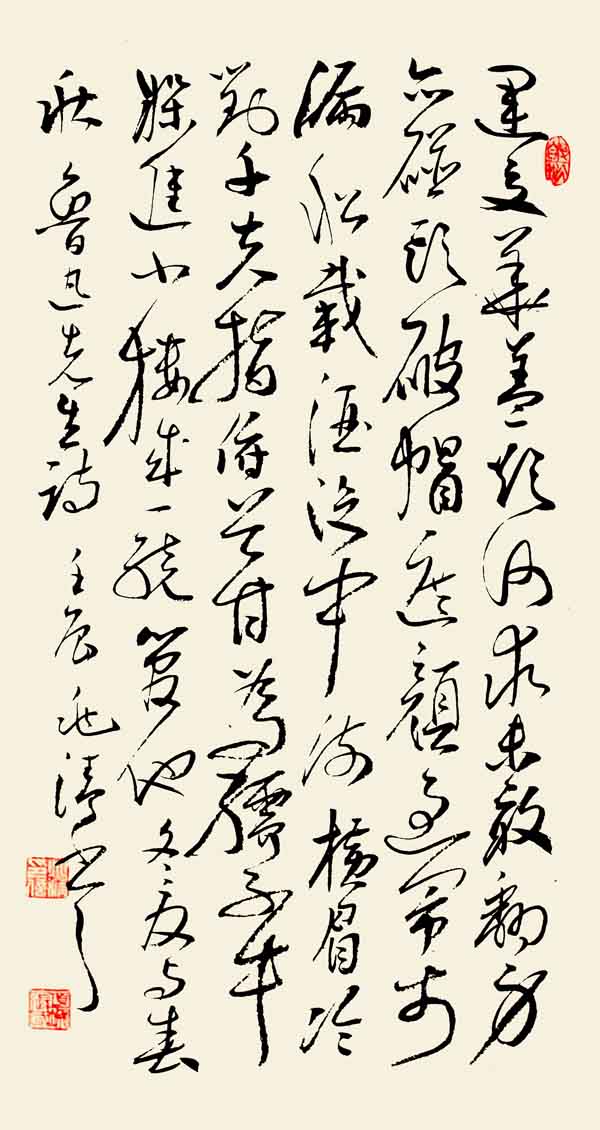 運交華蓋欲何求未敢翻身
亦碰頭破帽遮顏過鬧市
漏船載酒泛中流橫眉冷
對千夫指俯首甘為孺子牛
躲進小樓成一統管他冬夏與春
秋 魯迅先生詩 壬辰 濤書